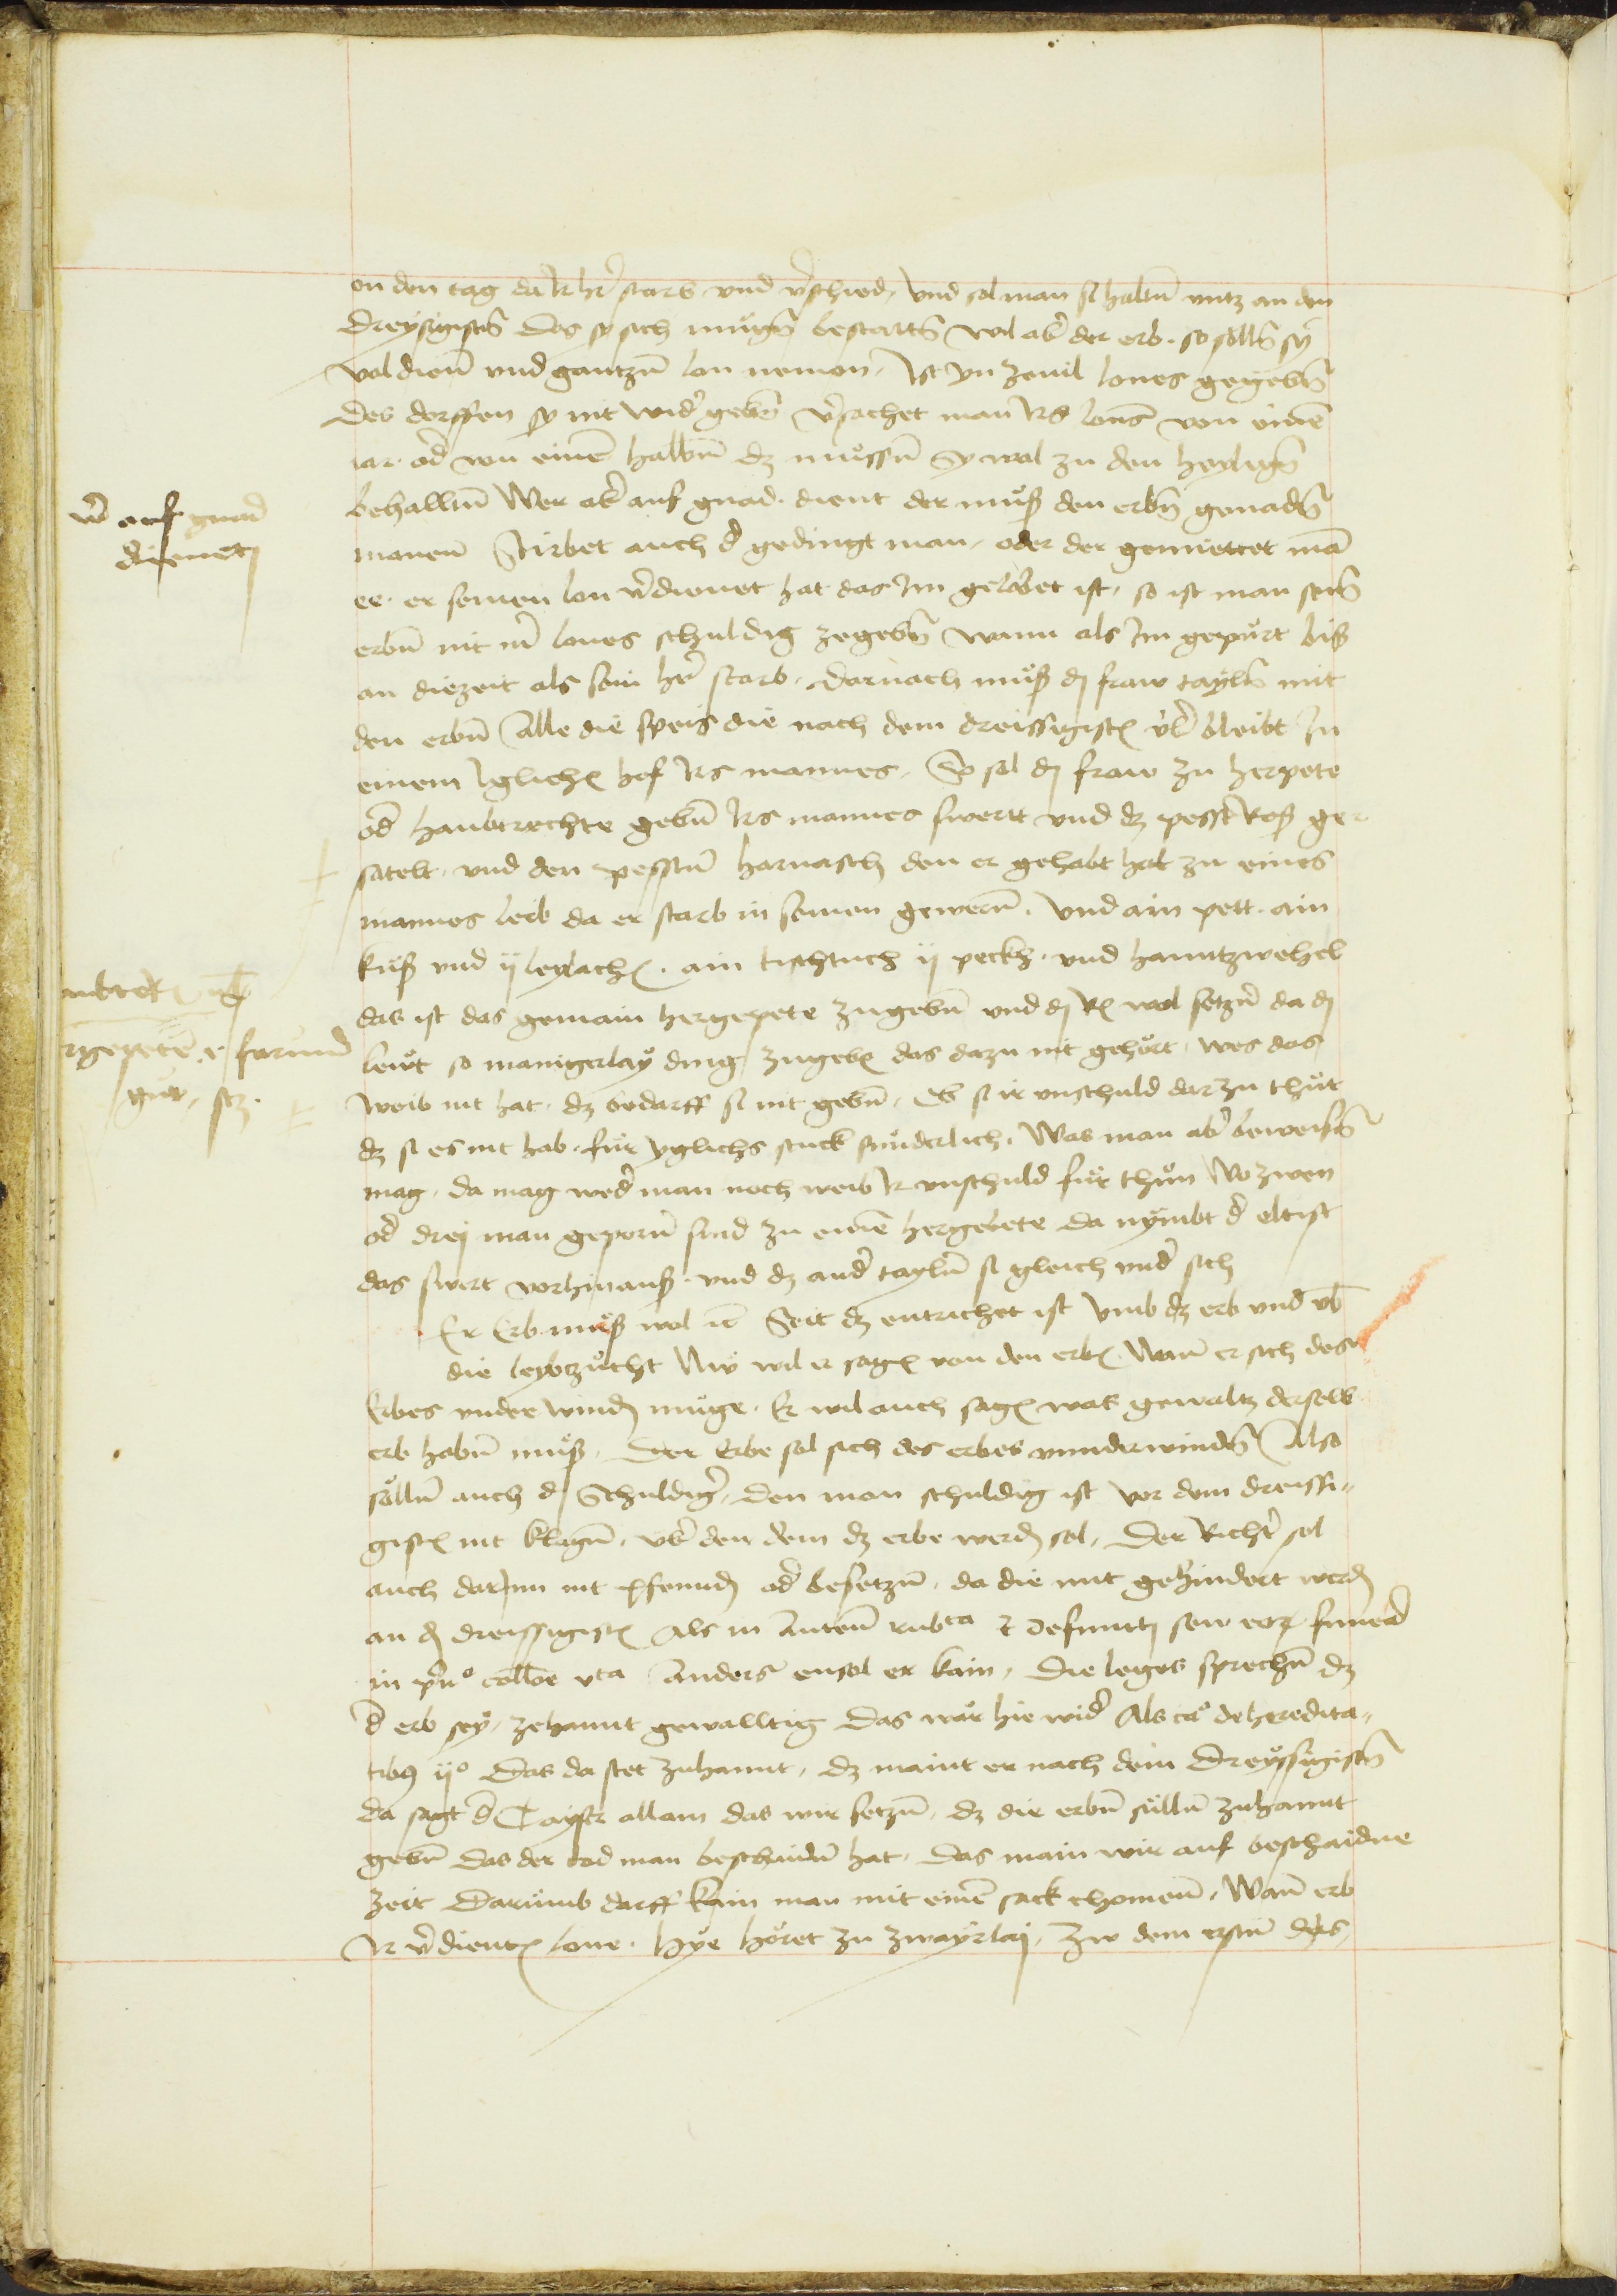 on den tag da Ir hr̄ starb vnd v̄schied, Vnd sol man si halltn̄ vntz an den
Dreysigistn̄ Das sy sich mu̓gn̄ bestattn̄ wil ab̄ der erb. so sölln̄ sy
vol dien̄ vnd gantzn̄ lon nemen, Ist yn zeuil lones gegebn̄
Des dorffen sy nit wid̄ gebn̄ v̄sachet man Irs lons von einē
iar. od̄ von einē halbn̄ dz müssn̄ Sy wol zu den heylign̄
behalltn̄ Wer ab̄ auf gnad. dient der muß den erbn̄ genadn̄
manen̄ Stirbet auch d̄ gedingt man, oder der gemiettet mā
ee. er seinen lon v̄dienet hat das Im gelobet ist, so ist man sein̄
erbn̄ nit m̄ lones schuldig zegebn̄ wann als Im gepürt biß
an die zeit als sein hr̄ starb, Darnach muß dj fraw tayln̄ mit
den erbn̄ Alle die speis die nach dem dreissigistn̄ üb̄ bleibt In
einem Iglichn̄ hof Irs mannes, So sol dj fraw zu herpete
od̄ haubtrechte gebn̄ Irs mannes swertt vnd dz pesst Roß ge-
satelt, vnd den pesstn̄ harnasch den er gehabt hat zu eines
mannes leib da er starb in seinen gewern̄. Vnd ain pett. ain
küß vnd ij leylachn̄. ain tischtuch ij peckh, vnd hanntzwehel
das ist das gemain hergepete zugebn̄ vnd dz wol setzn̄ da dj
leüt so manigerlay ding zugebn̄ das dazu nit gehört, wes das
weib nit hat, dz bedarff si nit gebn̄, Ob si ir vnschuld darzu thüt
dz si es nit hab. für yglichs stuck sunderlich, Was man ab̄ beweisn̄
mag, da mag wed̄ man noch weib Ir vnschuld für thün Wo zwen
od̄ drej man geporn̄ sind zu einē hergebete Da nymbt d̄ eltist
das swert vorhinauß. vnd dz and̄ tayln̄ si gleich vnd̄ sich
Er Erb muß wol Seit dz entrichet ist vmb dz erb vnd vb̄
die leybtzucht Nw wil er sagn̄ von den erbn̄ Wan̄ er sich des
Erbes vnder windn̄ müge. Er wil auch sagn̄ was gewaltz derselb
erb habn̄ muß. Der Erbe sol sich des erbes vnnderwindn̄ Also
sölln̄ auch dj Schuldiger, den man schuldig ist vor dem dreissi-
gistn̄ nit klagn̄, üb̄ den dem dz erbe werdn̄ sol, Der Richt̄ sol
auch darInn nit pfenndn̄ od̄ besetzn̄, da die nit gehindert werdn̄
an dj dreissigistn̄ Als in Auten̄ rubca defuncti seu
in pn̄o collōe vta Anders ensol er kain, Die leges sprechn̄ dz
d̄ erb sey, zehannt gewalltig Das wär hie wid̄ Als ca° de heredita-
tibꝰ ij° Das da stet zuhannt, dz maint er nach dem Dreyssigistn̄
da sagt d̄ allain das wir setzn̄, dz die erbn̄ sülln̄ zuhannt
gebn̄ das der tod man beschaidn̄ hat, Das main wir auf beschaidne
zeit Darumb darff kain man mit einē sack chomen̄, Wan̄ erb
Ir v̄dientn̄ lone. Hye höret zu zwayrlaj, Zw dem erstn̄ das,
w̄ auf gnad
dienet
rgepetē
gut, etz.